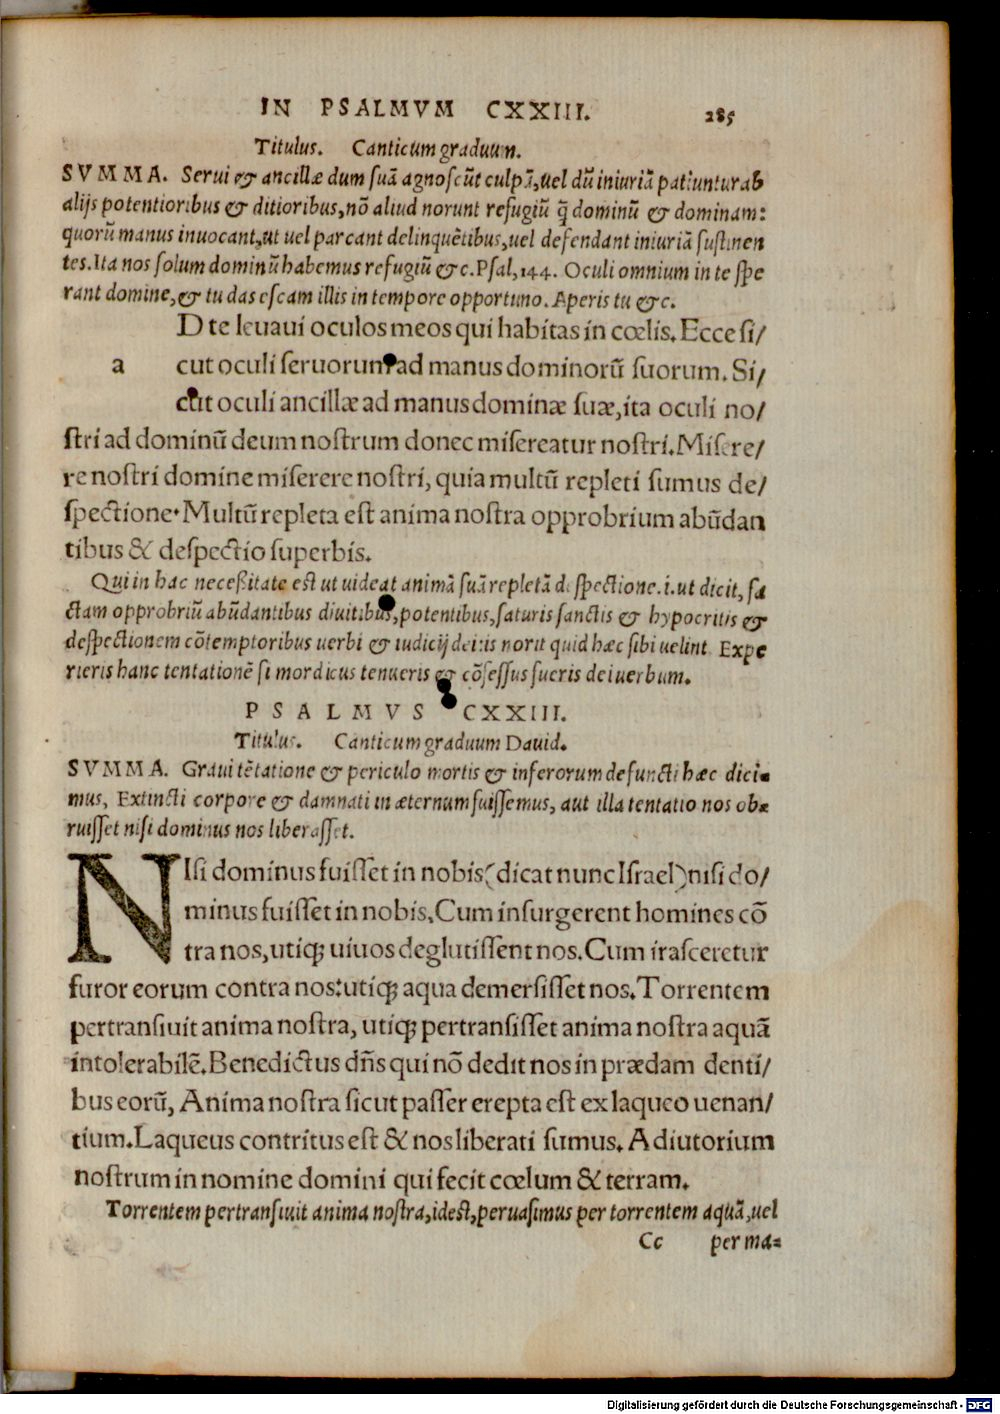 IN PSALMVM CXXIII. 285
Titulus. Canticum graduum.
SVMMA. Serui & ancillæ dum suã agnoscũt culpã, uel dũ iniuriã patiuntur ab
alijs potentioribus & ditioribus, nõ aliud norunt refugiũ q̃ dominũ & dominam:
quorũ manus inuocant, ut uel parcant delinquẽtibus, uel defendant iniuriã sustinen
tes. Ita nos solum dominũ habemus refugiũ &c. Psal, 144. Oculi omnium in te spe
rant domine, & tu das escam illis in tempore opportuno. Aperis tu &c.
D te leuaui oculos meos qui habitas in cœlis. Ecce si/
a cut oculi seruorum ad manus dominorũ suorum. Si/
cut oculi ancillæ ad manus dominæ suæ, ita oculi no/
stri ad dominũ deum nostrum donec misereatur nostri. Misere/
re nostri domine miserere nostri, quia multũ repleti sumus de/
spectione. Multũ repleta est anima nostra opprobrium abũdan
tibus & despectio superbis.
Qui in hac necessitate est ut uideat animã suã repletã despectione. i. ut dicit, fa
ctam opprobriũ abũdantibus diuitibus, potentibus, saturis sanctis & hypocritis &
despectionem cõtemptoribus uerbi & iudicij dei: is norit quid hæc sibi uelint. Expe
rieris hanc tentationẽ si mordicus tenueris & cõfessus fueris dei uerbum.
PSALMVS CXXIII.
Titulus. Canticum graduum Dauid.
SVMMA. Graui tẽtatione & periculo mortis & inferorum defuncti hæc dici=
mus, Extincti corpore & damnati in æternum fuissemus, aut illa tentatio nos obæ
ruisset nisi dominus nos liberasset.
NIsi dominus fuisset in nobis (dicat nunc Israel) nisi do/
minus fuisset in nobis, Cum insurgerent homines cõ
tra nos, utiq; uiuos deglutissent nos. Cum irasceretur
furor eorum contra nos: utiq; aqua demersisset nos. Torrentem
pertransiuit anima nostra, utiq; pertransisset anima nostra aquã
intolerabilẽ. Benedictus dñs qui nõ dedit nos in prædam denti/
bus eorũ, Anima nostra sicut passer erepta est ex laqueo uenan/
tium. Laqueus contritus est & nos liberati sumus. Adiutorium
nostrum in nomine domini qui fecit cœlum & terram.
Torrentem pertransiuit anima nostra, idest, peruasimus per torrentem aquã, uel
Cc per ma=
Digitalisierung gefördert durch die Deutsche Forschungsgemeinschaft - DFG